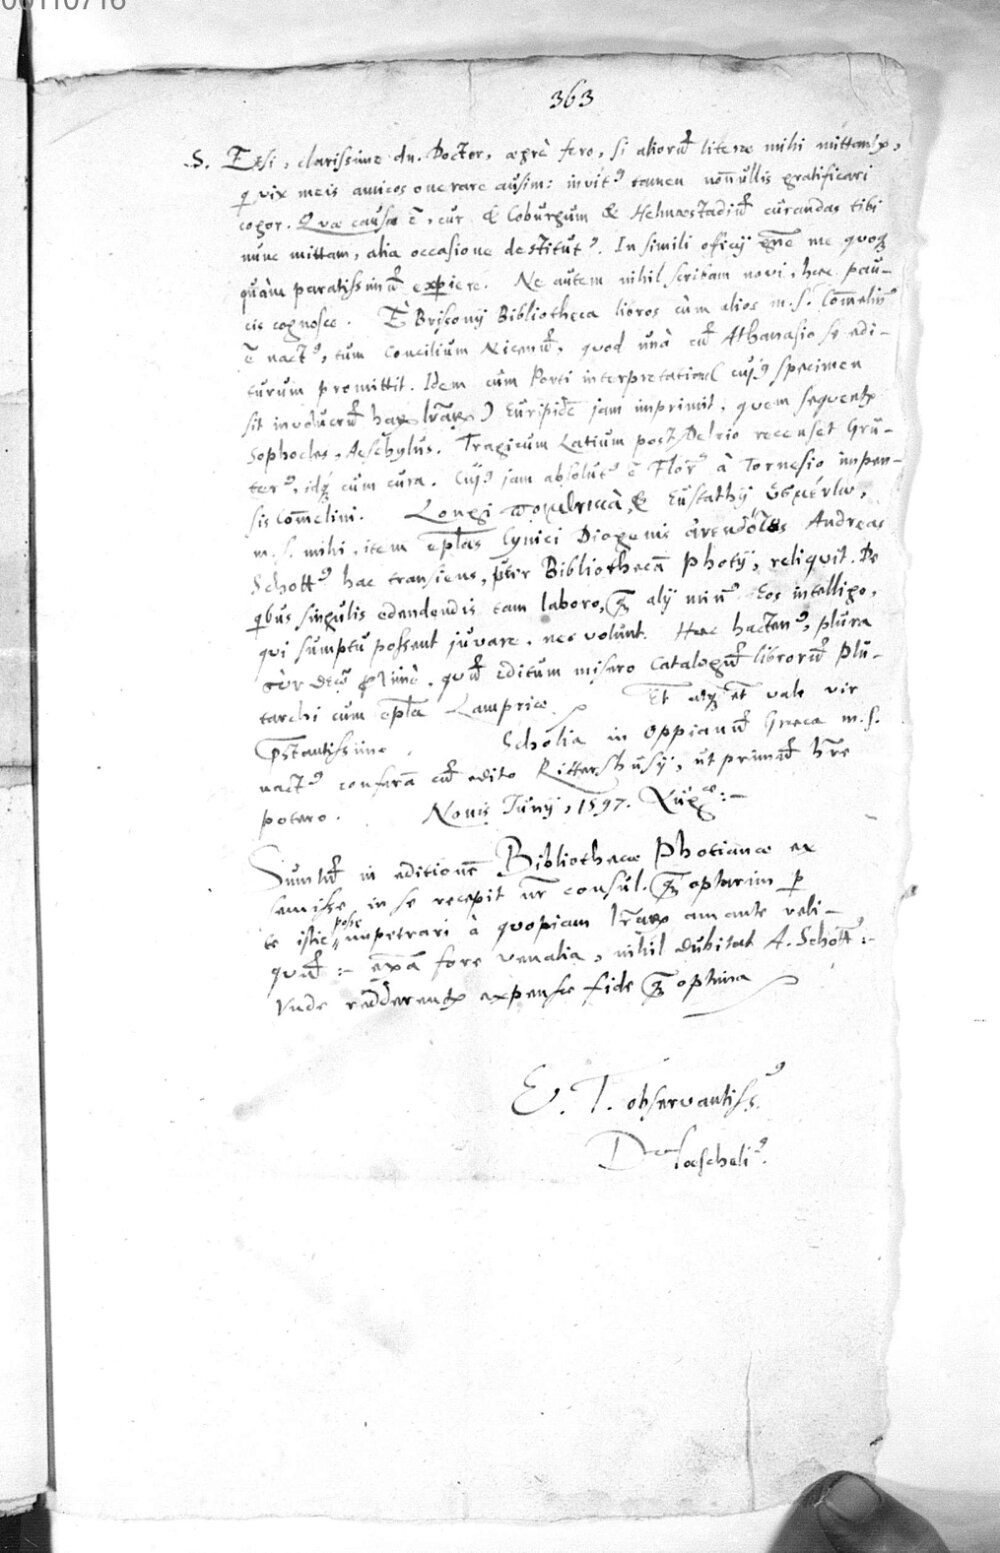 00110716
363
S. Etsi, clarissime dn. Doctor, aegrè fero, si aliorū literae mihi mittantr,
q vix meis amicos onerare ausim: invitꝰ tamen nōnullis gratificari
cogor. Quae causa ē, cur & Coburgum & Helmaestadiū curandas tibi
nunc mittam, alia occasione destitutꝰ. In simili officij gn̄e me quoq
quàm paratissimū experiere. Ne autem nihil scribam novi, haec pau-
cis cognosce. È Brissonij Bibliotheca libros cùm alios m.s. Com̄elinꝰ
ē nactꝰ, tum Concilium Nicenū, quod unà cū Athanasio se edi-
turum promittit. Idem cum Porti interpretatione (cujꝰ specimen
sit involucrū harum lr̄arum) Euripidē jam imprimit, quem sequentr
Sophocles, Aeschylus. Tragicum Latium post Delrio recenset Gru-
terꝰ, idq cum cura. Cujꝰ jam absolutꝰ ē Florꝰ à Tornesio impen-
sis Com̄elini. Longi ποιμενικὰ, & Eustathij
m.s. mihi, item epl̄as Cynici Diogenis ἀνεκδότους Andreas
Schottꝰ hac transiens, pr̄ter Bibliothecā Photij, reliquit. De
qbus singulis edendis tam laboro, q̄ alij minꝰ. Eos intelligo,
qui sumptu possent juvare, nec volunt. Haec hactenꝰ, plura
σὺν θεῷ quū editum misero Catalogū librorū Plu-
tarchi cum epl̄a Lampriae. Et vale vir
pr̄stantissime. Scholia in Oppianū Graeca m.s.
nactꝰ conferā cū edito Rittershusij, ut primū hr̄e
potero. Nonis Junij, 1597. Aug.ae :-
Sumtū in editionē Bibliothecae Photianae ex
semisse in se recepit nr̄ consul. q̄ optarim p
te istic posse impetrari à quopiam lr̄arum amante reli-
quū :- exa fore venalia, nihil dubitat A. Schottꝰ :-
Unde redderentr expensae fide q̄ optima
E. T. observantissꝰ.
D. Hoeschelꝰ.